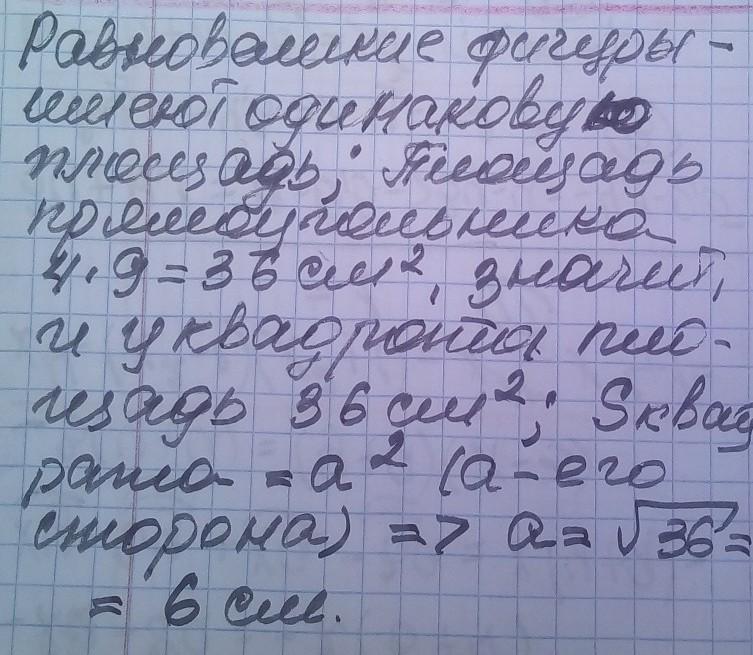 Равновеликие фигуры -
имеют одинаковую
площадь; Площадь
прямоугольника
4·9=36 см², значит,
и у квадрата пло-
щадь 36 см²; Sквад
рата = a² (a - его
сторона) => a = √36 =
= 6 см.